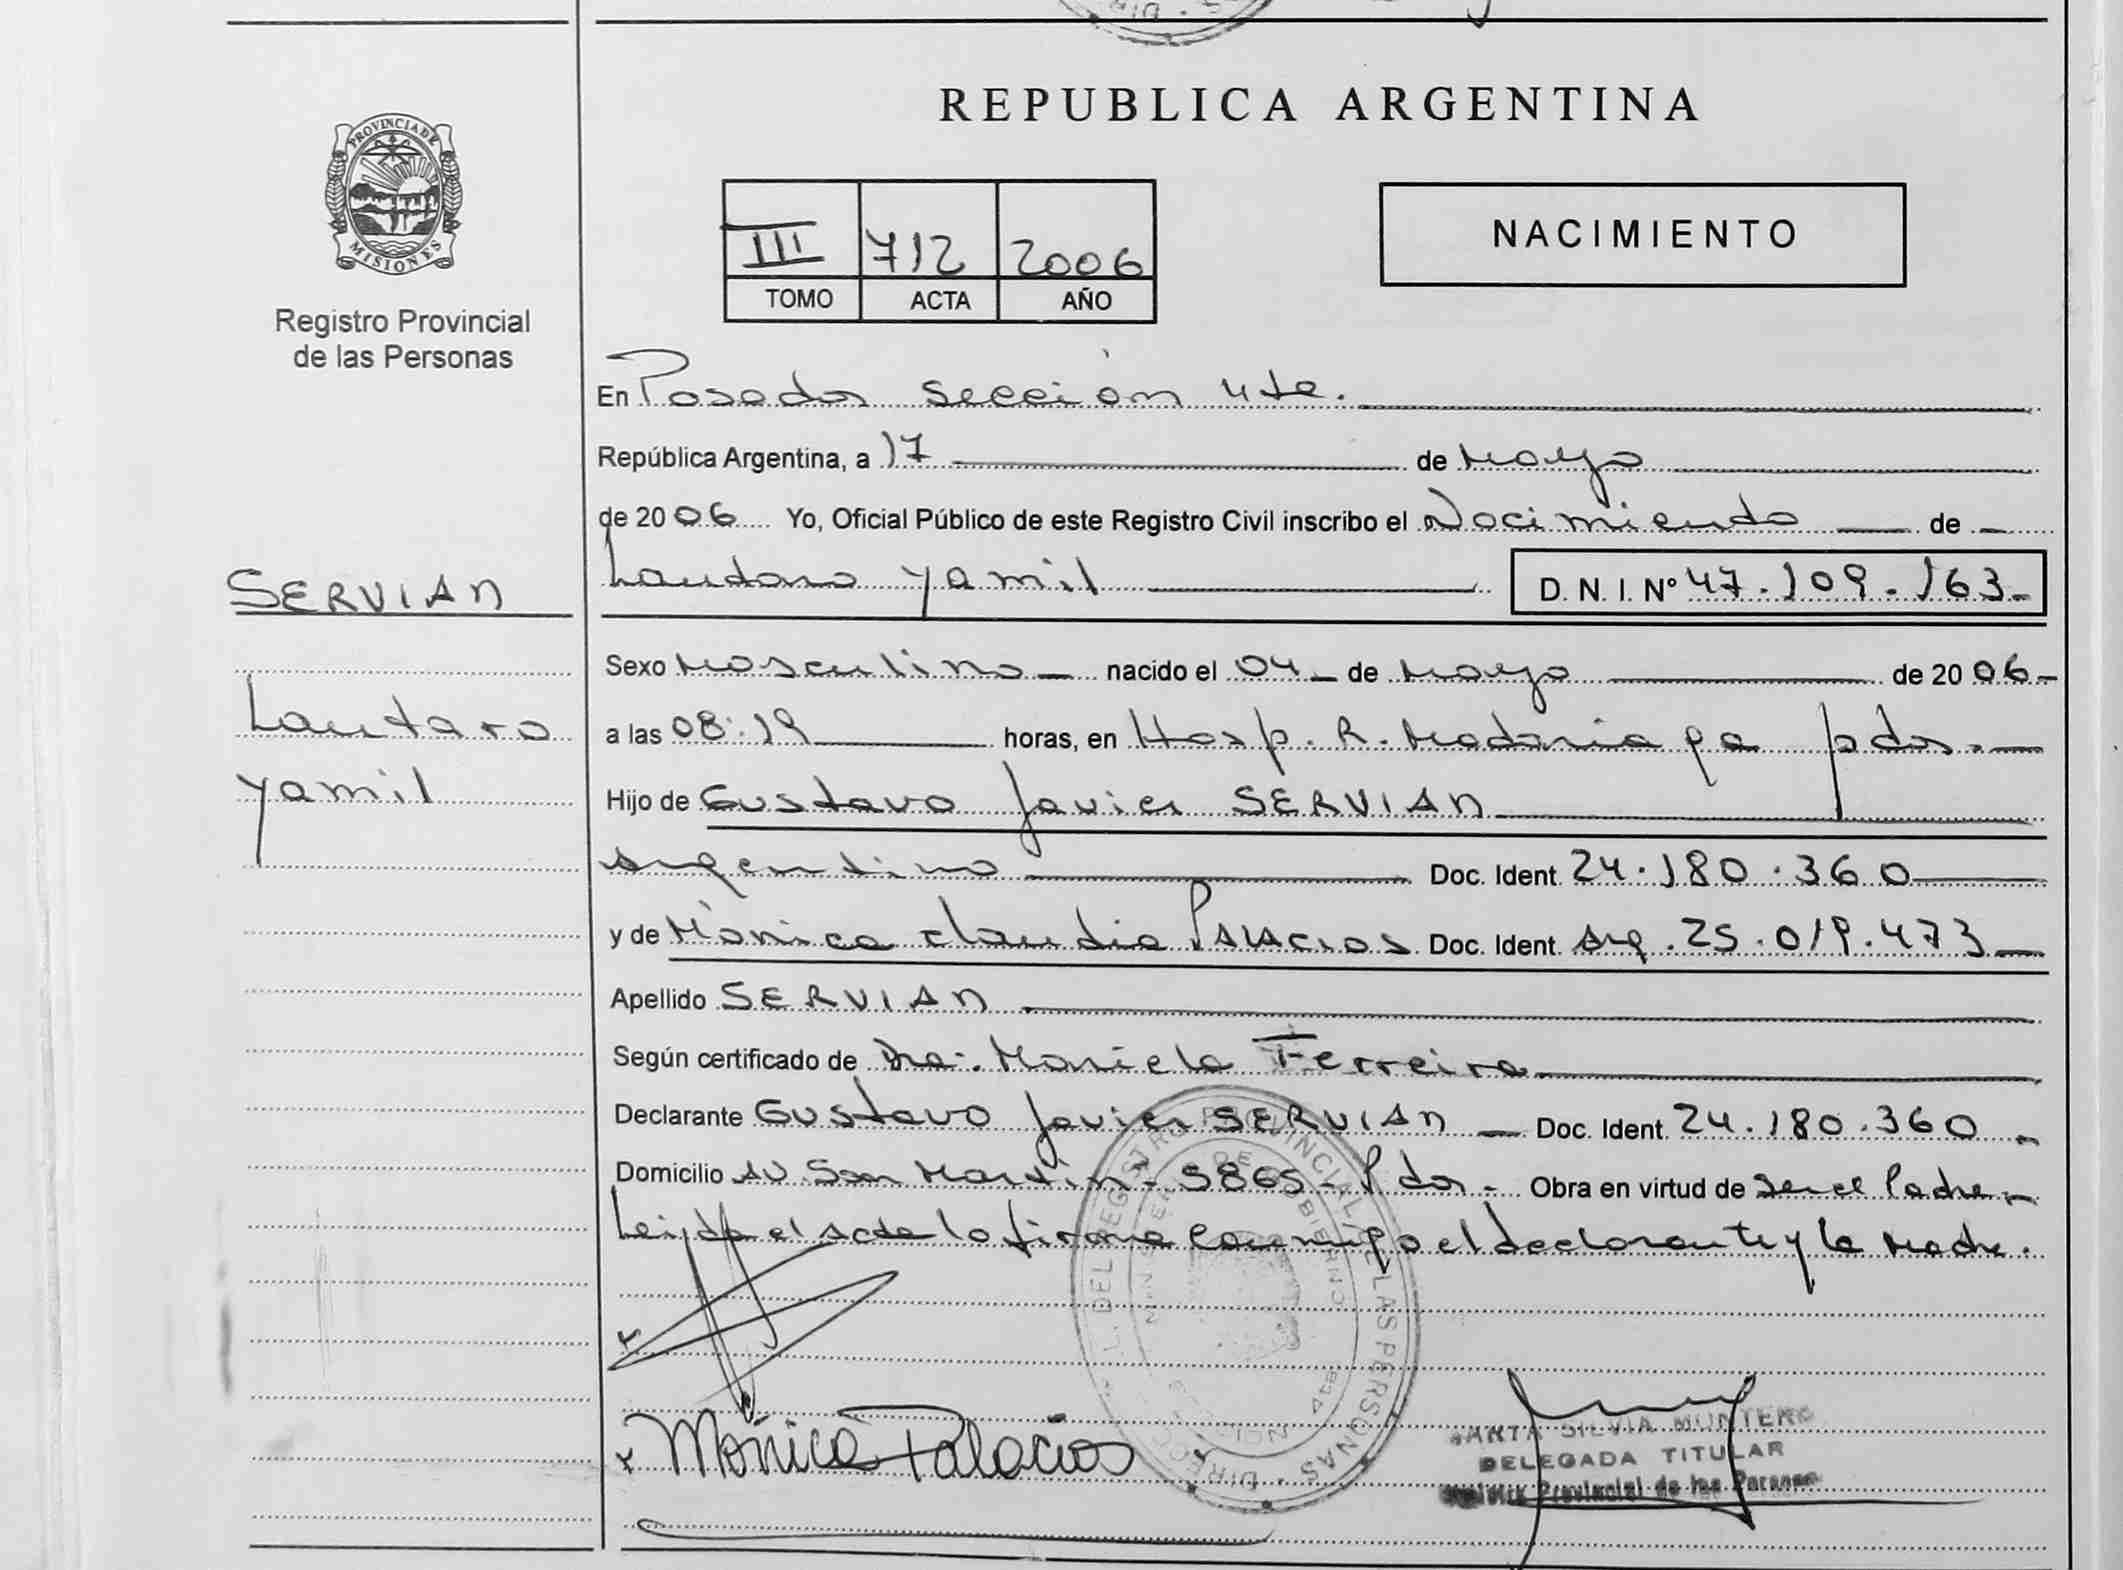 REPUBLICA ARGENTINA
PROVINCIA DE
MISIONES
Registro Provincial
de las Personas
III 712 2006
TOMO ACTA AÑO
NACIMIENTO
En Posadas sección 4ta.
República Argentina, a 17 de Mayo
de 2006 Yo, Oficial Público de este Registro Civil inscribo el Nacimiento de
SERVIAN
Lautaro Yamil
Lautaro Yamil D. N. I. Nº 47.109.163
Sexo Masculino nacido el 04 de Mayo de 2006
a las 08:19 horas, en Hosp. R. Madariaga Pdas.
Hijo de Gustavo Javier SERVIAN
argentino Doc. Ident. 24.180.360
y de Mónica Claudia PALACIOS Doc. Ident. Arg. 25.019.473
Apellido SERVIAN
Según certificado de Dra. Mariela Ferreira
Declarante Gustavo Javier SERVIAN Doc. Ident. 24.180.360
Domicilio Av. San Martín - 5865 - Pdas - Obra en virtud de ser el Padre
Leida el acta la firma conmigo el declarante y la Madre.
Mónica Palacios
DEL REGISTRO PROVINCIAL DE LAS PERSONAS
MISIONES
SILVIA MONTERO
DELEGADA TITULAR
Provincial de las Personas